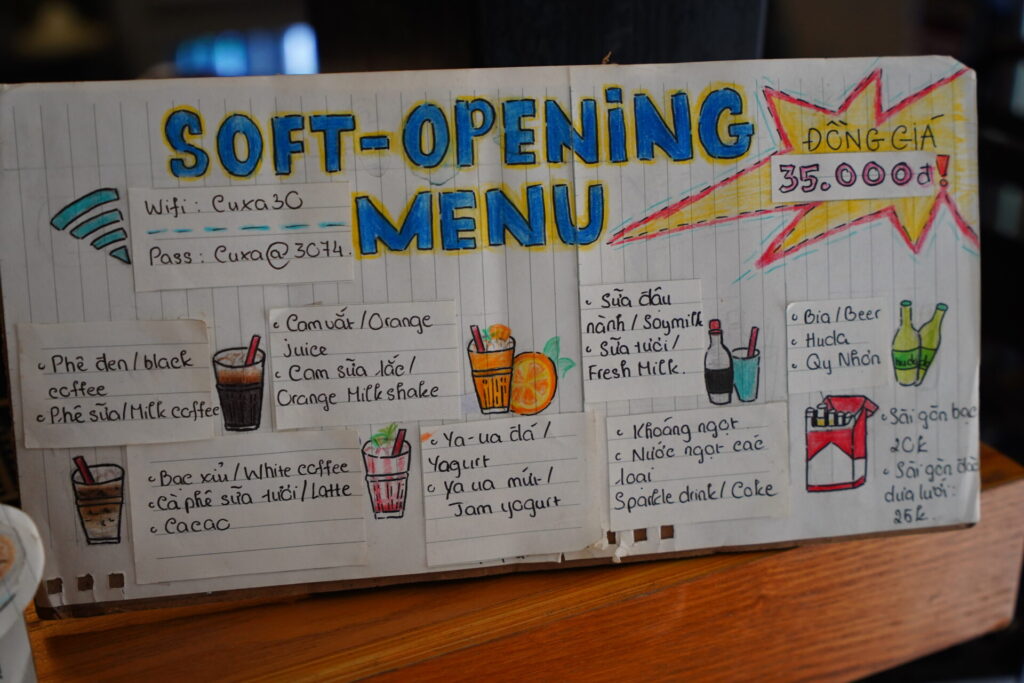 SOFT-OPENiNG
MENU
ĐỒNG GIÁ
35.000đ!
Wifi : Cuxa30
Pass : Cuxa@3074.
Phê đen/black
coffee
Phê sữa/Milk coffee
Cam vắt/Orange
juice
Cam sữa lắc/
Orange Milkshake
Sữa đậu
nành/Soymilk
Sữa tươi/
Fresh Milk.
Bia/Beer
Huda
Quy Nhơn
Bạc xỉu/White coffee
Cà phê sữa tươi/Latte
Cacao
Ya-ua đá/
Yagurt
Ya ua mứt/
Jam yogurt
Khoáng ngọt
Nước ngọt các
loại
Sparkle drink/Coke
Sài gòn bạc
20k
Sài gòn
dưa lưới:
25k